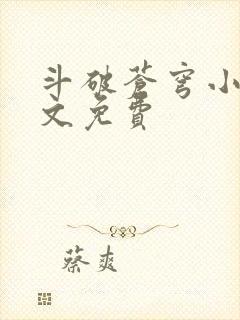 斗破苍穹小
文免费
蔡爽